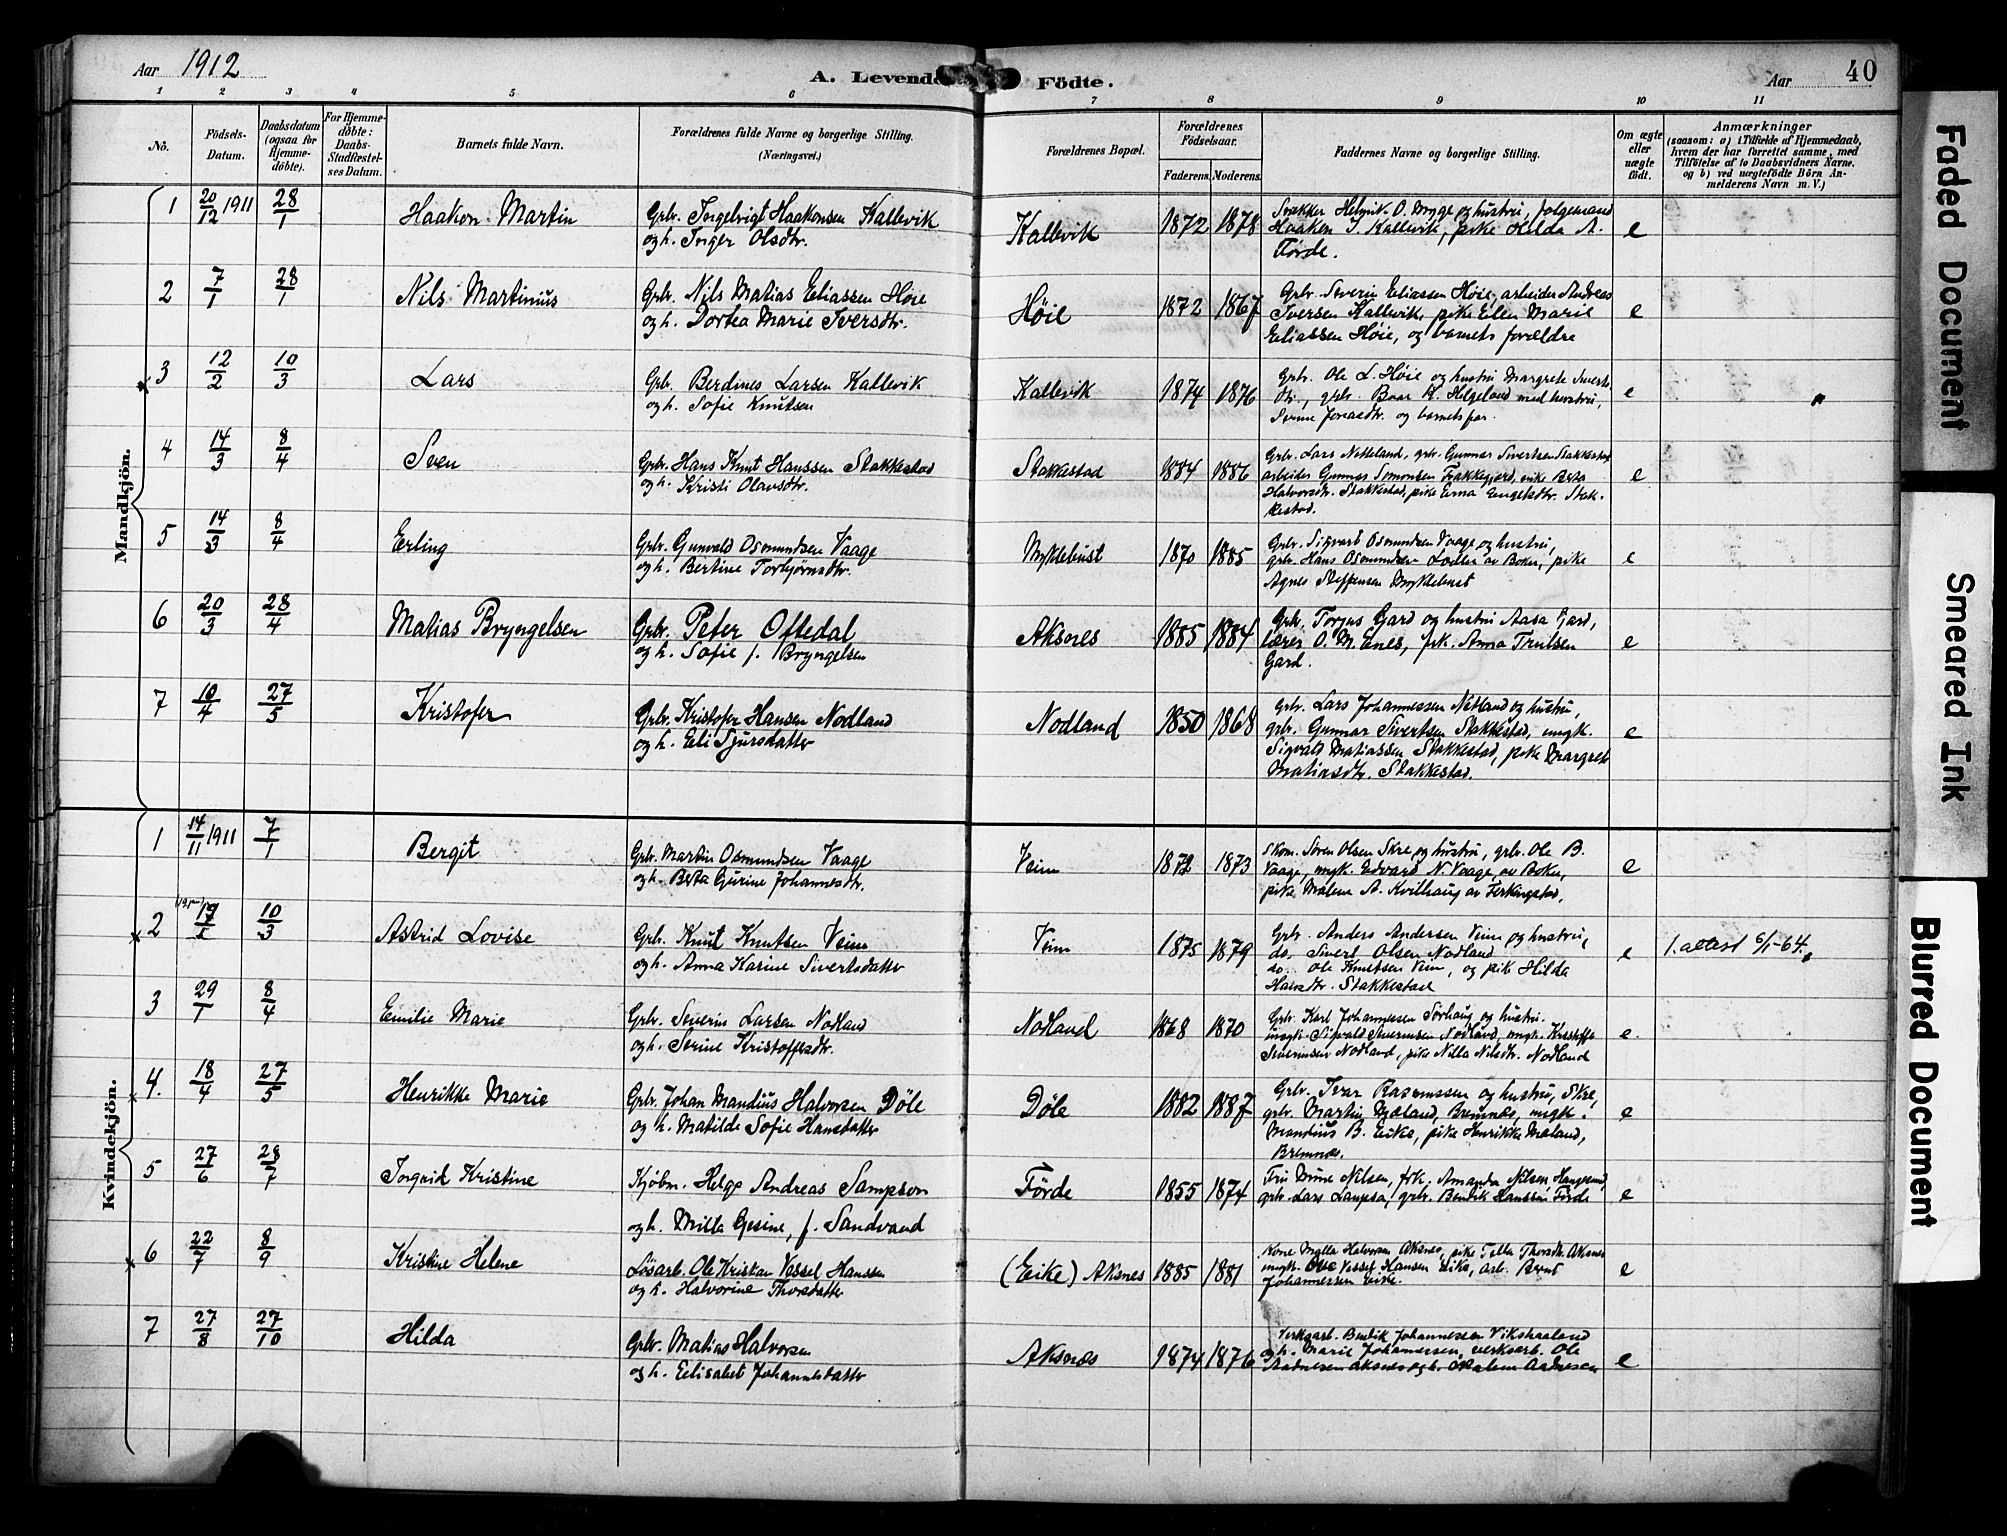 Aar 1912
A. Levende Födte.
Aar
40
1 2 3 4 5 6 7 8 9 10 11
Nô.
Födsels-Datum.
Daabsdatum (ogsaa for Hjemme-döbte).
For Hjemme-döbte: Daabs-Stadfæstel-ses Datum.
Barnets fulde Navn.
Forældrenes fulde Navne og borgerlige Stilling. (Næringsvei.)
Forældrenes Bopæl.
Forældrenes Födselsaar.
Faderens. Moderens.
Faddernes Navne og borgerlige Stilling.
Om ægte eller uægte födt.
Anmærkninger
(saasom: a) i Tilfælde af Hjemmedaab, hvem der har forrettet samme, med Tilföielse af to Daabsvidners Navne, og b) ved uægtefödte Börn Anmelderens Navn m. V.)
Mandkjön.
1 20/12 1911 28/1 Haakon Martin
Grbr. Ingelvigt Haakonsen Kallevik
og h. Inger Olsdtr.
Kallevik 1872 1878
O. Myge og hustru, følgemand
Haakon I. Kallevik, pike Hilda A.
Førde.
e
2 7/1 28/1 Nils Martinius
Grbr. Nils Matias Eliassen Høie
og h. Dortea Marie Iversdtr.
Høie 1872 1867
Grbr. Severin Eliassen Høie, arbeider Andreas
Iversen Kallevik, pike Elen Marie
Eliassen Høie, og barnets forældre
e
3 12/2 10/3 Lars
Grbr. Berdines Larsen Kallevik
og h. Sofie Knutsen
Kallevik 1874 1876
Grbr. Ole L. Høie og hustru Margrete Siverts-
dtr., grbr. Boar K. Helgeland med hustru,
Serine Jonasdtr. og barnets far.
e
4 14/3 8/4 Sven
Grbr. Hans Knut Hanssen Stakkestad
og h. Kristi Olavsdtr.
Stakkestad 1884 1886
Grbr. Lars Netteland, grbr. Gunnar Sivertsen Stakkestad,
arbeider Gunnar Simonsen Frakkagjerd, enke Berta
Halvorsdtr. Stakkestad, pike Erna Engelsdtr. Stak-
kestad.
e
5 14/3 8/4 Erling
Grbr. Gunvald Osmundsen Vaage
og h. Bertine Torbjørnsdtr.
Myklebust 1870 1885
Grbr. Sigvart Osmundsen Vaage og hustru,
grbr. Hans Osmundsen Lodden av Boken, pike
Agnes Steffensen Myklebust
e
6 20/3 28/4 Matias Bryngelsen
Grbr. Peter Oftedal
og h. Sofie f. Bryngelsen
Aksnes 1885 1884
Grbr. Torgus Gard og hustru Aasa Gard,
lærer O. M. Enes, frk. Anna Trulsen
Gard.
e
7 10/4 27/5 Kristofer
Grbr. Kristofer Hansen Nodland
og h. Eli Sjursdatter
Nodland 1850 1868
Grbr. Lars Johannessen Netland og hustru,
grbr. Gunnar Sivertsen Stakkestad, ungk.
Sigvald Matiassen Stakkestad, pike Margrete
Matiasdtr. Stakkestad.
e
Kvindekjön.
1 14/11 1911 7/1 Bergit
Grbr. Martin Osmundsen Vaage
og h. Berta Gurine Johannesdtr.
Veim 1872 1873
Skom. Søren Olsen Skre og hustru, grbr. Ole B.
Vaage, ungk. Edvard N. Vaage av Boken,
pike Malene A. Kvilhaug av Ferkingstad.
e
2 10/3 Astrid Lovise
Grbr. Knut Knutsen Veim
og h. Anna Karine Sivertsdatter
Veim 1875 1879
Grbr. Anders Andersen Veim og hustru,
do. Sivert Olsen Nodland
do. Ole Knutsen Veim, og pike Hilda
Hansdtr. Stakkestad
e 1. attest 6/1-64.
3 29/1 8/4 Emilie Marie
Grbr. Severin Larsen Nodland
og h. Serine Kristoffersdtr.
Nodland 1868 1870
Grbr. Karl Johannessen Sørhaug og hustru.
ungk. Sigvald Severinsen Nodland, ungk. Kristoffer
Severinsen Nodland, pike Nilla Nilsdtr. Nodland
e.
4. 18/4 27/5 Henrikke Marie
Grbr. Johan Mandius Halvorsen Døle
og h. Matilde Sofie Hansdatter
Døle 1882 1887
Grbr. Ivar Rasmussen og hustru, Skre,
grbr. Martin Mæland, Bremnæs, ungk.
Mandius B. Eike, pike Henrikke Mæland,
Bremnæs.
e
5 27/6 28/7 Ingrid Kristine
Kjøbm. Helge Andreas Sampson
og h. Milla Gesine, f. Sandvand
Førde 1855 1874
Fru Mine Nilsen, frk. Amanda Nilsen, Haugesund,
grbr. Lars Lampsa, grbr. Bendik Hanssen Førde
e
6 22/7 8/9 Kristine Helene
Løsarb. Ole Kristian Vessel Hanssen
og h. Halvorine Thorsdatter
(Eike) Aksnes 1885 1881
Kone Malla Halvorsen Aksnes, pike Tella Thorsdtr. Aksnes
ungk. Ole Vessel Hansen Eike, arb. Bernt
Johannessen Eike.
e
7 27/8 27/10 Hilda
Grbr. Matias Halvorsen
og h. Elisabet Johannesdatter
Aksnæs 1874 1876
Verksarb. Bendik Johannessen Vikshaaland
og h. Marie Johannessen, verksarb. Ole
Aadnesen Aksnes og h. Malene Aadnesen
e
Faded Document
Smeared Ink
Blurred Document